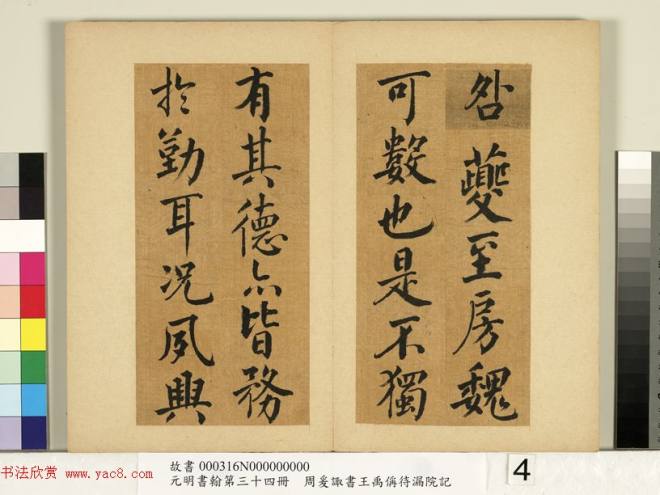 咎夔至房魏
可數也是不獨
有其德亦皆務
於勤耳况夙興
故書 000316N000000000
元明書翰第三十四冊 周爰諏書王禹偁待漏院記
4
书法欣赏 www.yac8.com